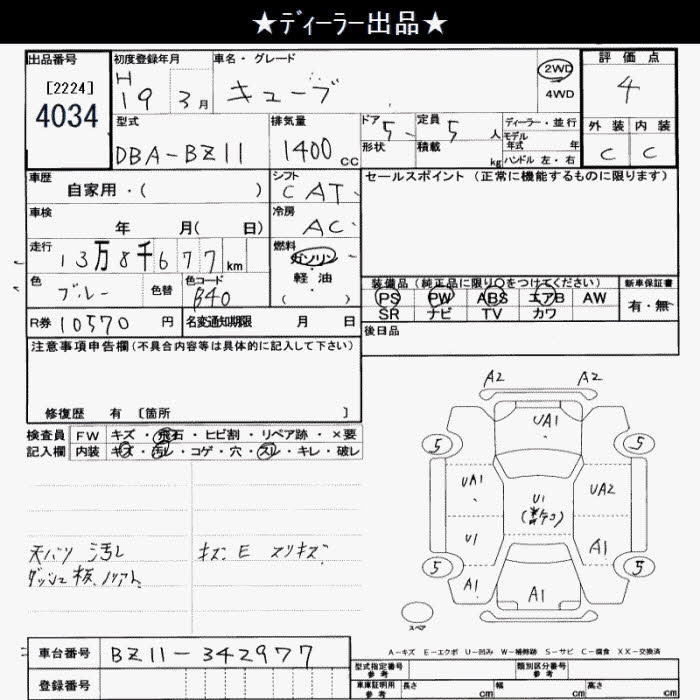 ★ディーラー出品★
出品番号 初度登録年月 車名・グレード 評価点
[2224] H 19 3月 キューブ 2WD 4
4034 4WD
型式 排気量 ドア 定員 ディーラー・並行 外装 内装
5 5人 モデル年式 年
DBA-BZ11 1400cc 形状 積載 kg ハンドル 左・右 C C
車歴 シフト セールスポイント(正常に機能するものに限ります)
自家用・( ) CAT
車検 冷房
年 月( 日) AC
走行 燃料
13万8千677km ガソリン
色 色替 色コード 軽油 装備品(純正品に限り○をつけてください) 新車保証書
ブルー B40 ( ) PS PW ABS エアB AW 有・無
R券 10570円 名変通知期限 月 日 SR ナビ TV カワ
注意事項申告欄(不具合内容等は具体的に記入して下さい) 後日品
修復歴 有 [箇所 ]
A2 A2
検査員 FW キズ・飛石・ヒビ割・リペア跡・×要
記入欄 内装 キズ・汚レ・コゲ・穴・スレ・キレ・破レ
UA1
5 5
UA1 UA2
U1
U1 A1
天バリ 汚レ キズ E スリキズ
5 5
A1 A1
スペア
A-キズ E-エクボ U-凹み W-補修跡 S-サビ C-腐食 XX-交換済
車台番号 BZ11-342977
登録番号 型式指定番号 参考 類別区分番号 参考
車庫証明用 参考 長さ cm 幅 cm 高さ cm